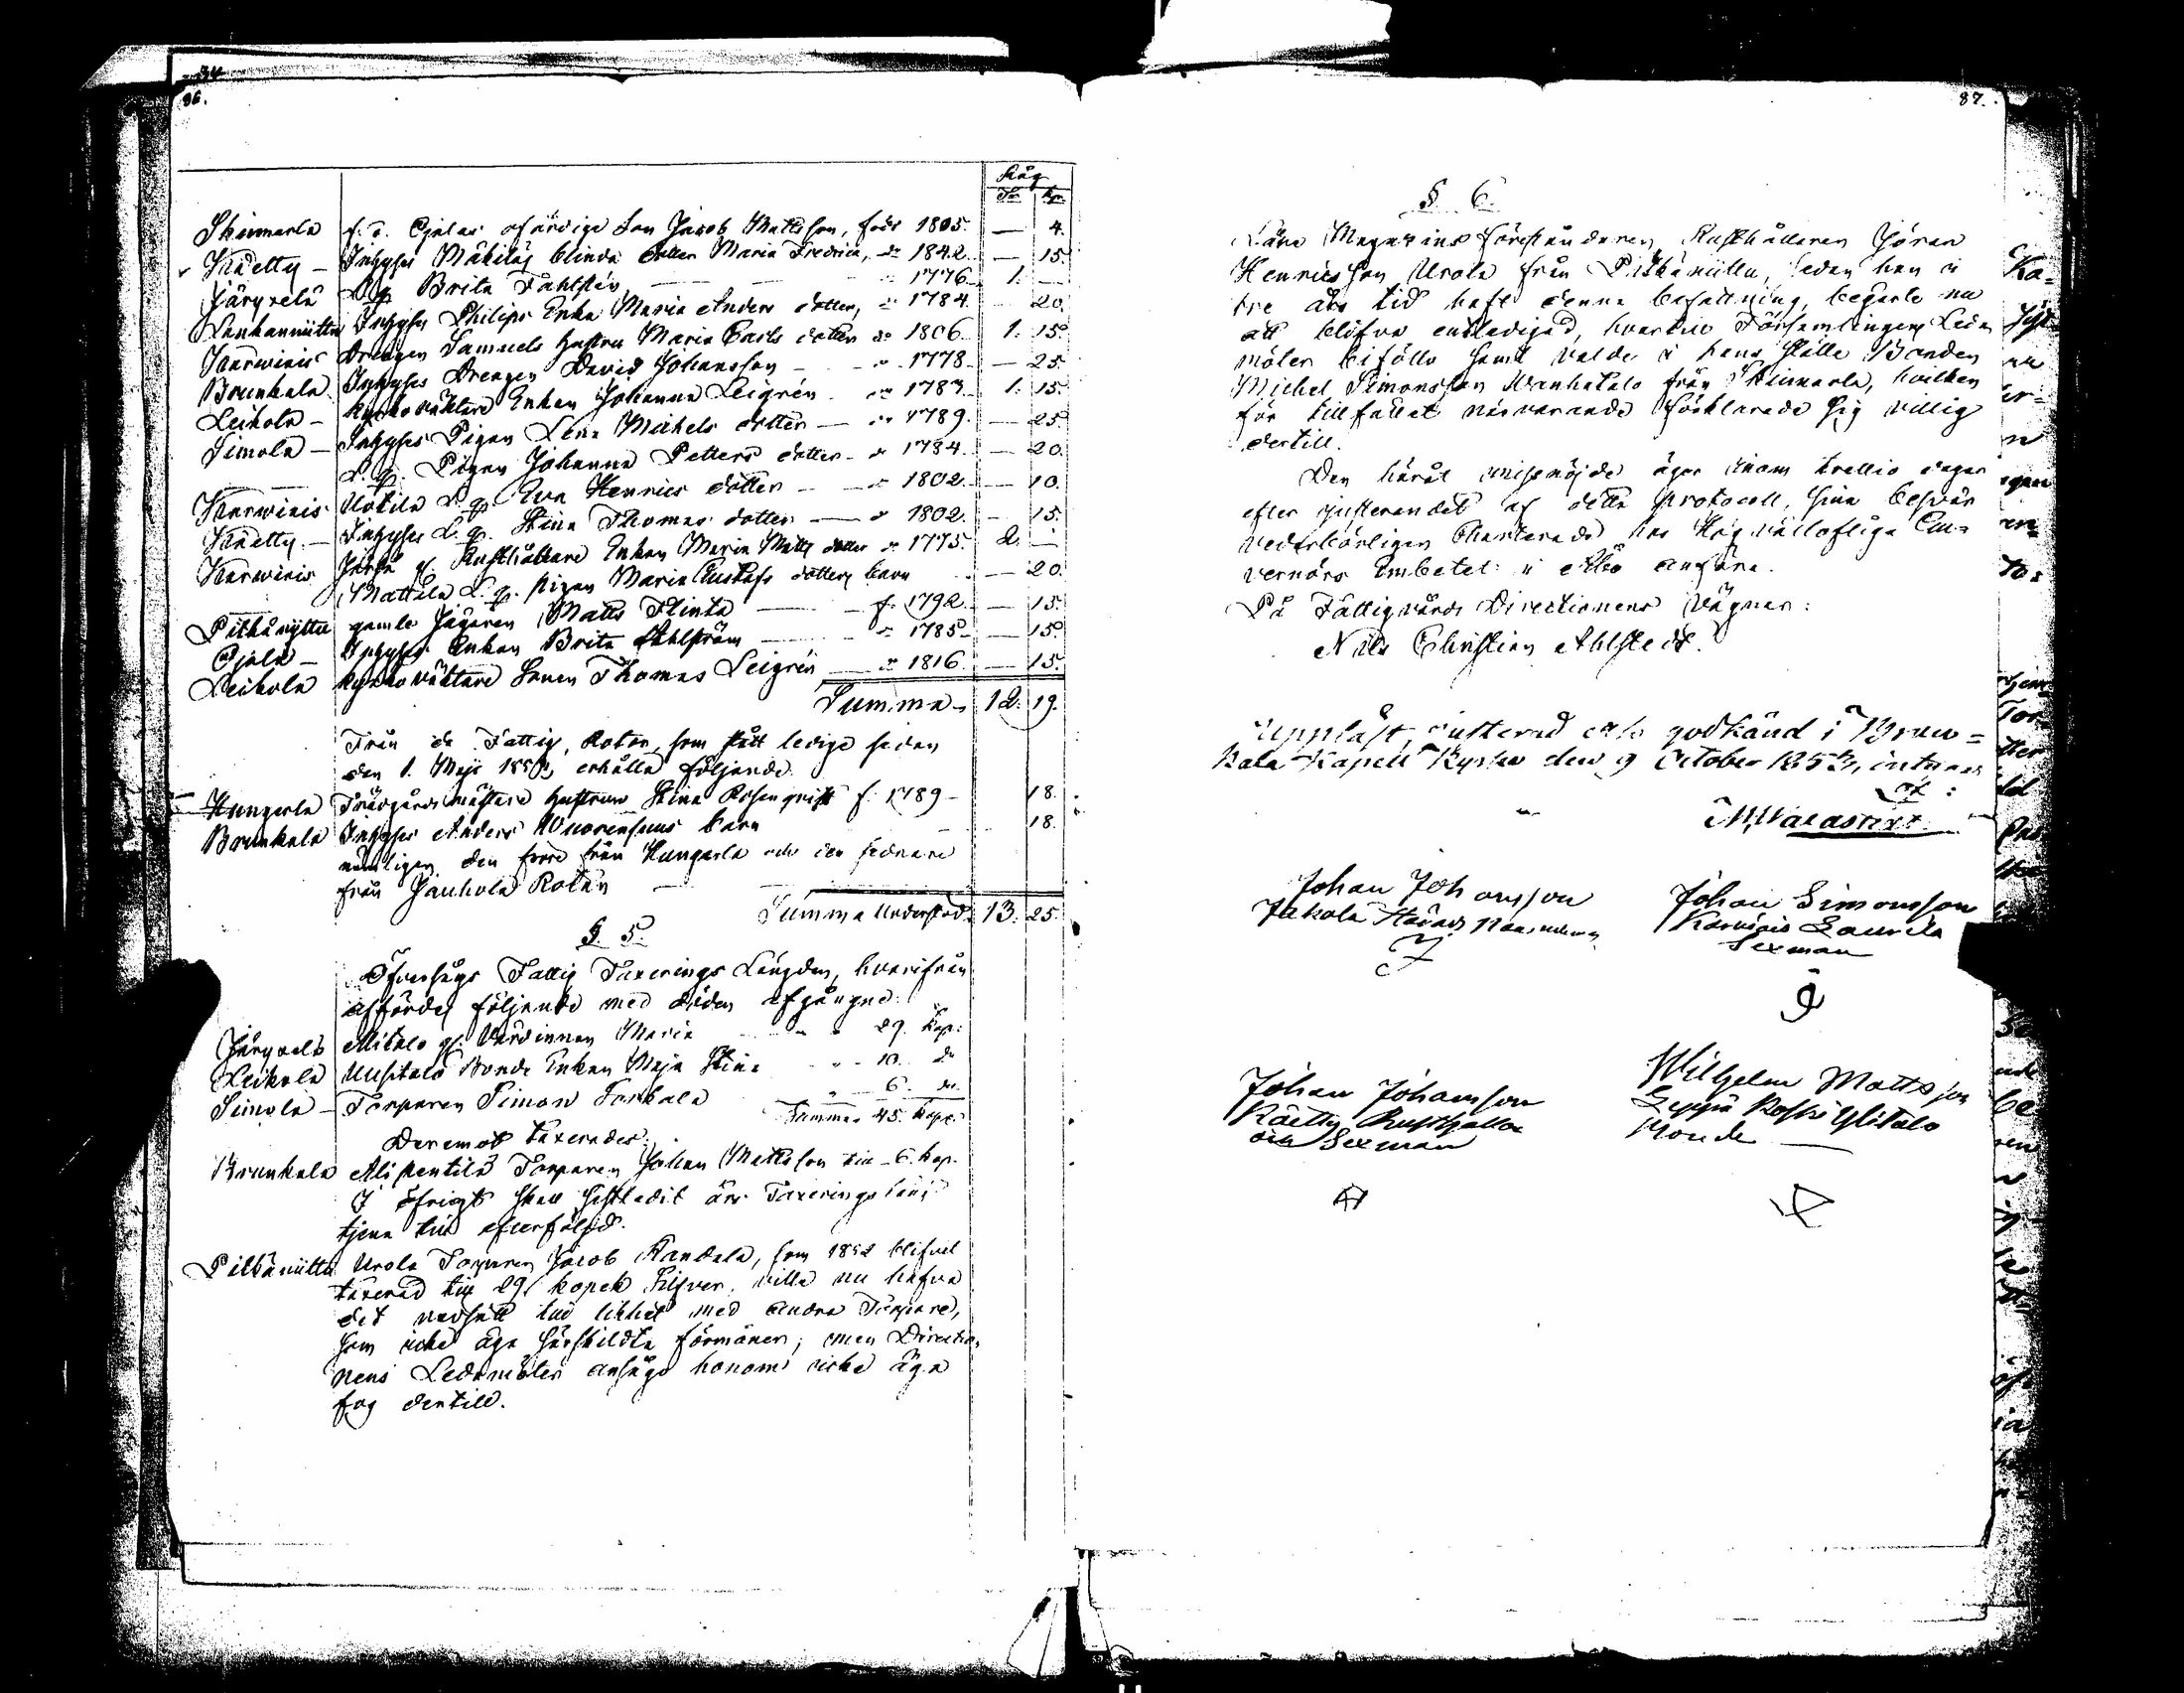 86.
Råg
Tr Kp.
Skinnarla f. d. Cjalas ofärdige Son Jacob Mattsson, född 1805. — 4.
Käetty — Inhyses Mäkiläs blinda dotter Maria Fredrica, do 1842. — 15.
Järvelä D. q. Brita Fahlsten — 1776. 1. —
Lankanniittu Inhyses Philips Enka Maria Anders dotter, do 1784. 20.
Karwinis Drengen Samuels hustru Maria Carls dotter do 1806. 1. 15.
Brunkala Inhyses Drengen David Johansson — 1778. — 25.
Leikola — Kyrkoväktare Enkan Johanna Leigrén do 1783. 1. 15.
Simola — Inhyses Pigan Lena Michels dotter — do 1789. — 25.
D. q. Pigan Johanna Petters dotter — 1784. — 20.
Karwinis Uotila D. q. Eva Henrics dotter — 1802. — 10.
Käetty — Inhyses D. q. Stina Thomas dotter — 1802. — 15.
Karwinis gl. Rusthållare Enkan Maria Matts dotter 1775. 2. —
Mattila D. q. pigan Maria Gustafs dotters barn — 20.
Pitkäniittu gamle Jägaren Matts Flinta — f. 1792. — 15.
Cjala — Inhyses Enkan Brita Ahlström — 1785. — 15.
Leikola Kyrkoväktare Sonen Thomas Leigrén — 1816. — 15.
Summa 12. 19.
Från de Fattig Rotar, som stått lediga sedan
den 1. Maji 1853, erhålla följande
Hungerla Trädgårdsmästare hustrun Stina Rosenqvist f. 1789 — 18.
Brunkala Inhyses Anders Wuorensuus barn 18.
nemligen den förre från Hungerla och den sednare
från Jauhola Rotan
Summa Understöd 13. 25.
§. 5.
Öfversågs Fattig Taxerings Längden, hvarifrån
affördes följande med döden afgångne:
Järvelä Alitalo gl. Värdinnan Maria 29. Kop:
Leikola Uusitalo Bonde Enkan Maja Stina 10. do
Simola — Torparen Simon Torkala 6. do
Summa 45. kopr.
Deremot taxerades:
Brunkala Alipentilä Torparen Johan Mattsson till 6. kop.
I öfrigt skall sistledit års Taxeringslängd
tjena till efterföljd.
Pitkäniittu Urola Torparen Jacob Randala, som 1852 blifvit
taxerad till 29. kopek Silfver, ville nu hafva
det nedsatt till likhet med andra Torpare,
som icke äga särskildta förmåner; men Directio-
nens Ledamöter ansågo honom icke äga
fog dertill.
87.
§. 6.
Låne Magazins föreståndaren, Rusthållaren Jöran
Henricsson Urola från Pitkäniittu, sedan han i
tre års tid haft denna befattning, begärte nu
att blifva entledigad, hvartill Församlingens Leda-
möter biföllo samt valde i hans ställe Bonden
Michel Simonsson Wanhatalo från Skinnarla, hvilken
för tillfället närvarande förklarade sig villig
dertill.
Den häråt missnöjde äger inom trettio dagar
efter justerandet af detta protocoll, sina besvär
vederbörligen Charterade hos Högvällofliga Gu-
vernörs Embetet i Åbo anföra.
På Fattigvårds Directionens Vägnar:
Nils Christian Ahlstedt.
Uppläst, justerad och godkänd i Brun-
kala Kapell Kyrka den 9 October 1853, intygas
af:
Johan Johansson
Jakola Härads Nämndeman
Johan Simonsson
Karvinis Laurila
Sexman
Johan Johansson
Käetty Rusthålla
och Sexman
Wilhelm Mattsson
Seppä Koski Ylitalo
Bonde